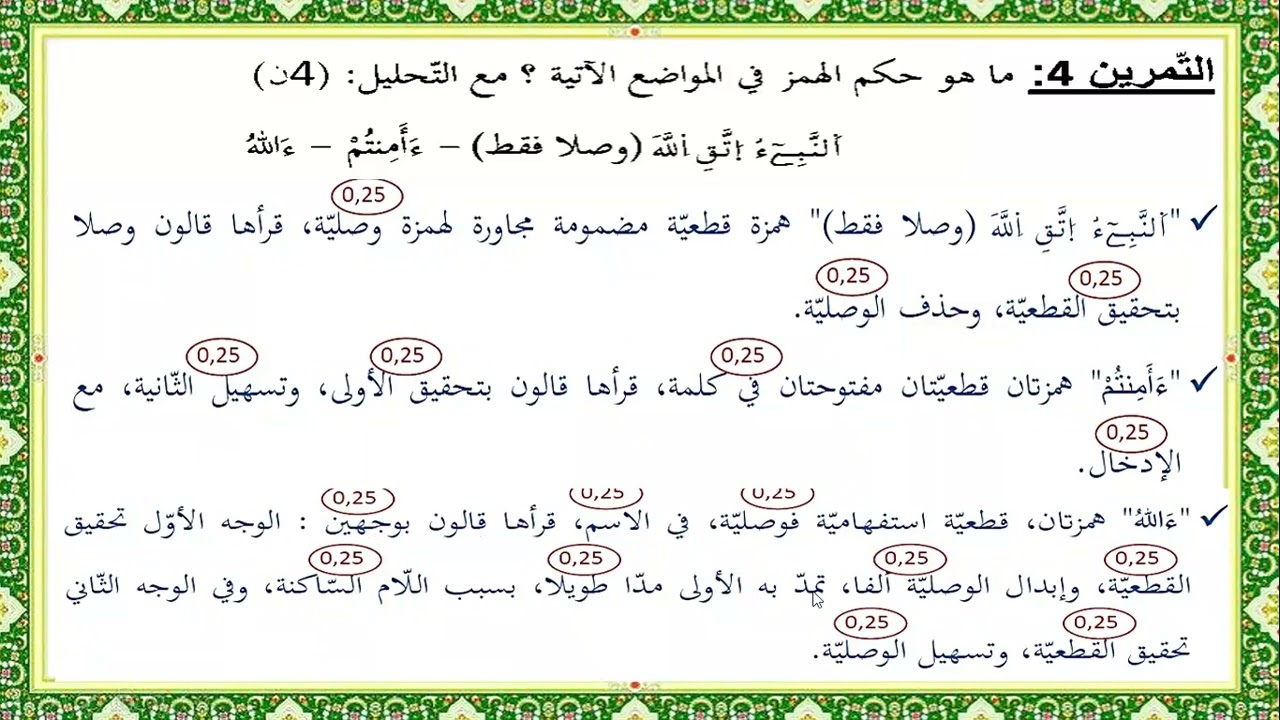 التّمرين 4: ما هو حكم الهمز في المواضع الآتية ؟ مع التّحليل: (4ن)
اَلنَّبِيٓءُ اِتَّقِ اِللَّهَ (وصلا فقط) – ءَأَمِنتُمْ – ءَاللهُ
0,25
✓ "اَلنَّبِيٓءُ اِتَّقِ اِللَّهَ (وصلا فقط)" همزة قطعيّة مضمومة مجاورة لهمزة وصليّة، قرأها قالون وصلا
0,25 0,25
بتحقيق القطعيّة، وحذف الوصليّة.
0,25 0,25 0,25
✓ "ءَأَمِنتُمْ" همزتان قطعيّتان مفتوحتان في كلمة، قرأها قالون بتحقيق الأولى، وتسهيل الثّانية، مع
0,25
الإدخال.
0,25 0,25 0,25
✓ "ءَاللهُ" همزتان، قطعيّة استفهاميّة فوصليّة، في الاسم، قرأها قالون بوجهين : الوجه الأوّل تحقيق
0,25 0,25 0,25 0,25
القطعيّة، وإبدال الوصليّة ألفا، تمدّ به الأولى مدّا طويلا، بسبب اللّام السّاكنة، وفي الوجه الثّاني
0,25 0,25
تحقيق القطعيّة، وتسهيل الوصليّة.